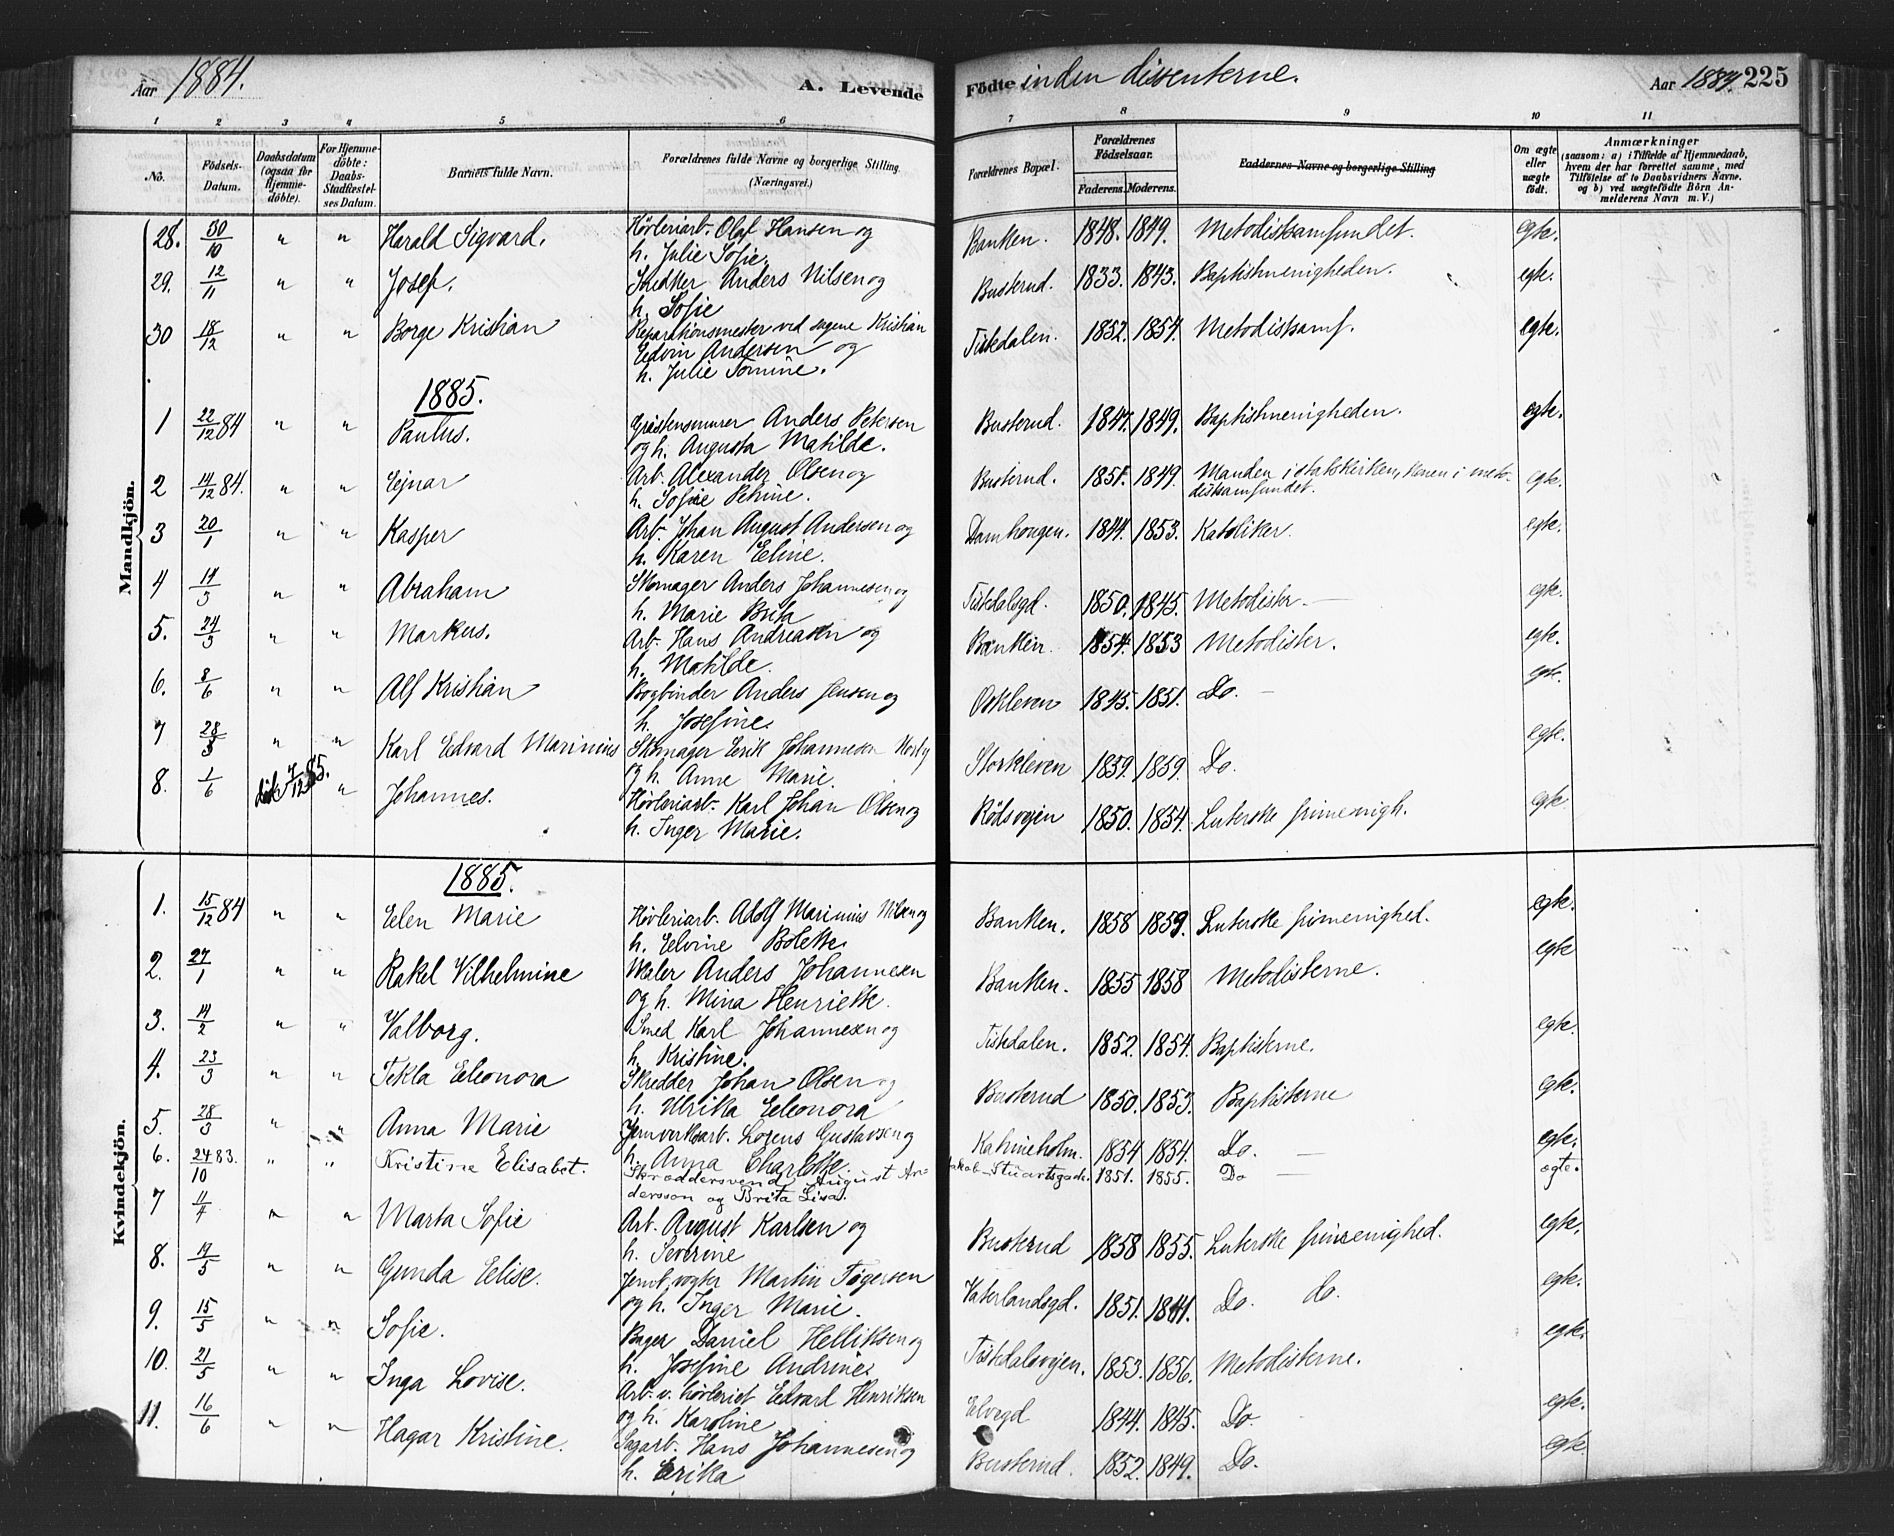 Aar 1884. A. Levende Födte inden dissenterne. Aar 1884. 225
1 2 3 4 5 6 7 8 9 10 11
No. Födsels-Datum. Daabsdatum (ogsaa for Hjemme-döbte). For Hjemme-döbte: Daabs-Stadfæstel-ses Datum. Barnets fulde Navn. Forældrenes fulde Navne og borgerlige Stilling. (Næringsvei.) Forældrenes Bopæl. Forældrenes Födselsaar. Faderens. Moderens. Faddernes Navne og borgerlige Stilling Om ægte eller uægte födt. Anmærkninger (saasom: a) i Tilfælde af Hjemmedaab, hvem der har forrettet samme, med Tilföielse af to Daabsvidners Navne, og b) ved uægtefödte Börn An-melderens Navn m. V.)
Mandkjön.
28. 30/10 " " Harald Sigvard. Høvleriarb. Olaf Hansen og
h. Julie Sofie. Banken. 1848. 1849. Metodistsamfundet. egte.
29. 12/11 " " Josef. Snedker Anders Nilsen og
h. Sofie Busterud. 1833. 1843. Baptistmenigheden. egte.
30 18/12 " " Borge Kristian Reparationsmester ved sagene Kristian
Edvin Andersen og
h. Julie Tomine. Tistedalen. 1852. 1854. Metodistsamf. egte.
1885.
1 22/12 84 " " Paulus. Anders Petersen
og h. Augusta Matilde. Busterud. 1847. 1849. Baptistmenigheden. egte.
2 14/12 84. " " Ejnar Arb. Alexander Olsen og
h. Sofie Petrine. Busterud. 1851. 1849. Manden i statskirken, konen i meto-
distsamfundet. egte.
3 20/1 " " Kasper Arb. Johan August Andersen og
h. Karen Eline. Damhougen. 1844. 1853. Katoliker. egte.
4 " " Abraham Skomager Anders Johannesen og
h. Marie Brita Tistedalsgd. 1850. 1845. Metodister. — egte.
5. 24/3 " " Markus. Arb. Hans Andreasen og
h. Matilde. Banken. 1854. 1853 Metodister. egte.
6. 8/6 " " Alf Kristian Bogbinder Anders Jensen og
h. Josefine. Oskleven 1845. 1851. Do. — egte.
7 " " Karl Edvard Marinius Skomager Eerik Johannesen
og h. Anne Marie. Storkleven 1859. 1859. Do. egte.
8. 1/6 7/12 85. " Johannes. Høvleriarb. Karl Johan Olsen og
h. Inger Marie. Rødsvejen 1850. 1854. Luterske frimenigh. egte.
Kvindekjön.
1885.
1. 15/12 84 " " Eelen Marie Høvleriarb. Adolf Marinius Nilsen og
h. Eelvine Bolette. Banken. 1858 1859. Luterske frimenighed. egte.
2. 27/1 " " Rakel Vilhelmine Maler Anders Johannesen
og h. Mina Henriette. Banken. 1855 1858 Metodisterne. egte
3. 14/2 " " Valborg. Smed Karl Johannesen og
h. Kristine. Tistedalen. 1852. 1854. Baptisterne. egte.
4. 23/3 " " Tekla Eleonora Skredder Johan Olsen og
h. Ulrika Eeleonora Busterud 1850. 1853. Baptisterne egte.
5. 28/3 " " Anna Marie Jernverksarb. Lorens Gustavsen og
h. Anna Charlotte. Katrineholm. 1854 1854. Do. — egte.
6. 24/10 83. " " Kristine Elisabet. Skræddersvend August An-
dersson og Brita Lisa. Jakob Stuartsgade. 1851. 1855. Do — ægte.
7 4/4 " " Marta Sofie Arb. August Karlsen og
h. Severine Busterud 1858 1855. Luterske frimenighed. egte.
8. " " Gunda Eelise. Martin Tøgersen
og h. Inger Marie. Vaterlandsgd. 1851. 1841. Do. do. egte.
9. 15/5 " " Sofie. Bager Daniel Helliksen og
h. Josefine Andrine. Tistedalsvejen. 1853. 1856. Metodisterne. egte.
10. 21/5 " " Inga Lovise. Arb. v. høvleriet Edvard Henriksen
og h. Karoline Elvegd 1844. 1845. Do. — egte.
11. 16/6 " " Hagar Kristine. Sagarb. Hans Johannesen og
h. Eerika Busterud. 1852. 1849. Do. egte.